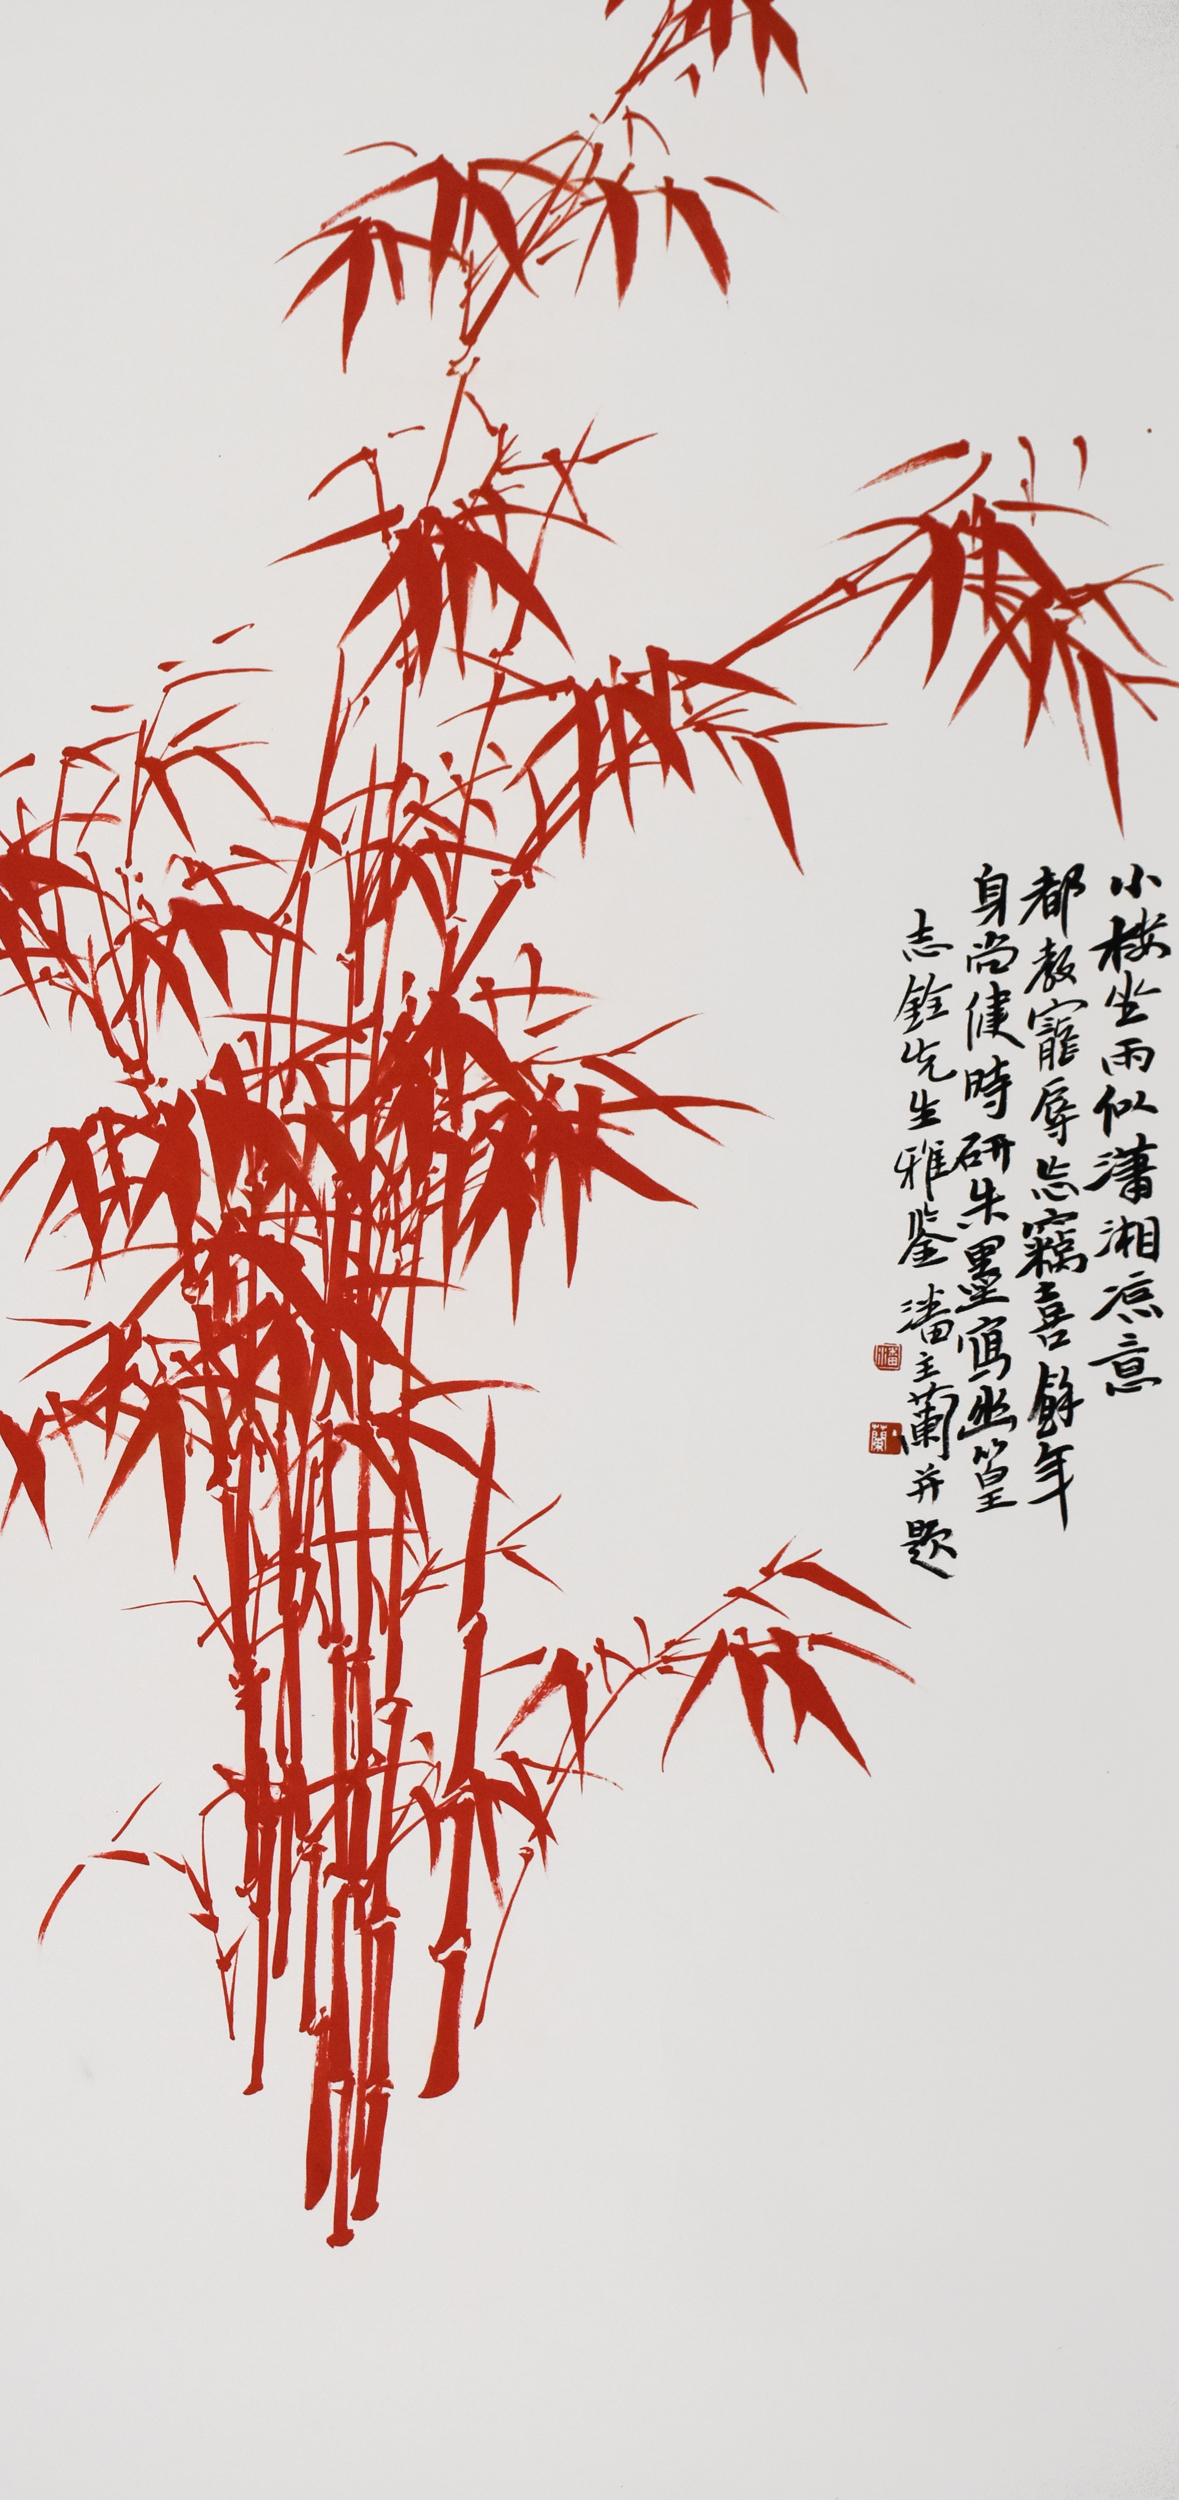 小楼坐雨似瀟湘凉意
都教寵辱忘竊喜餘年
身尚健時研朱墨寫幽篁
志銓先生雅鑒潘主蘭并題
潘
主蘭